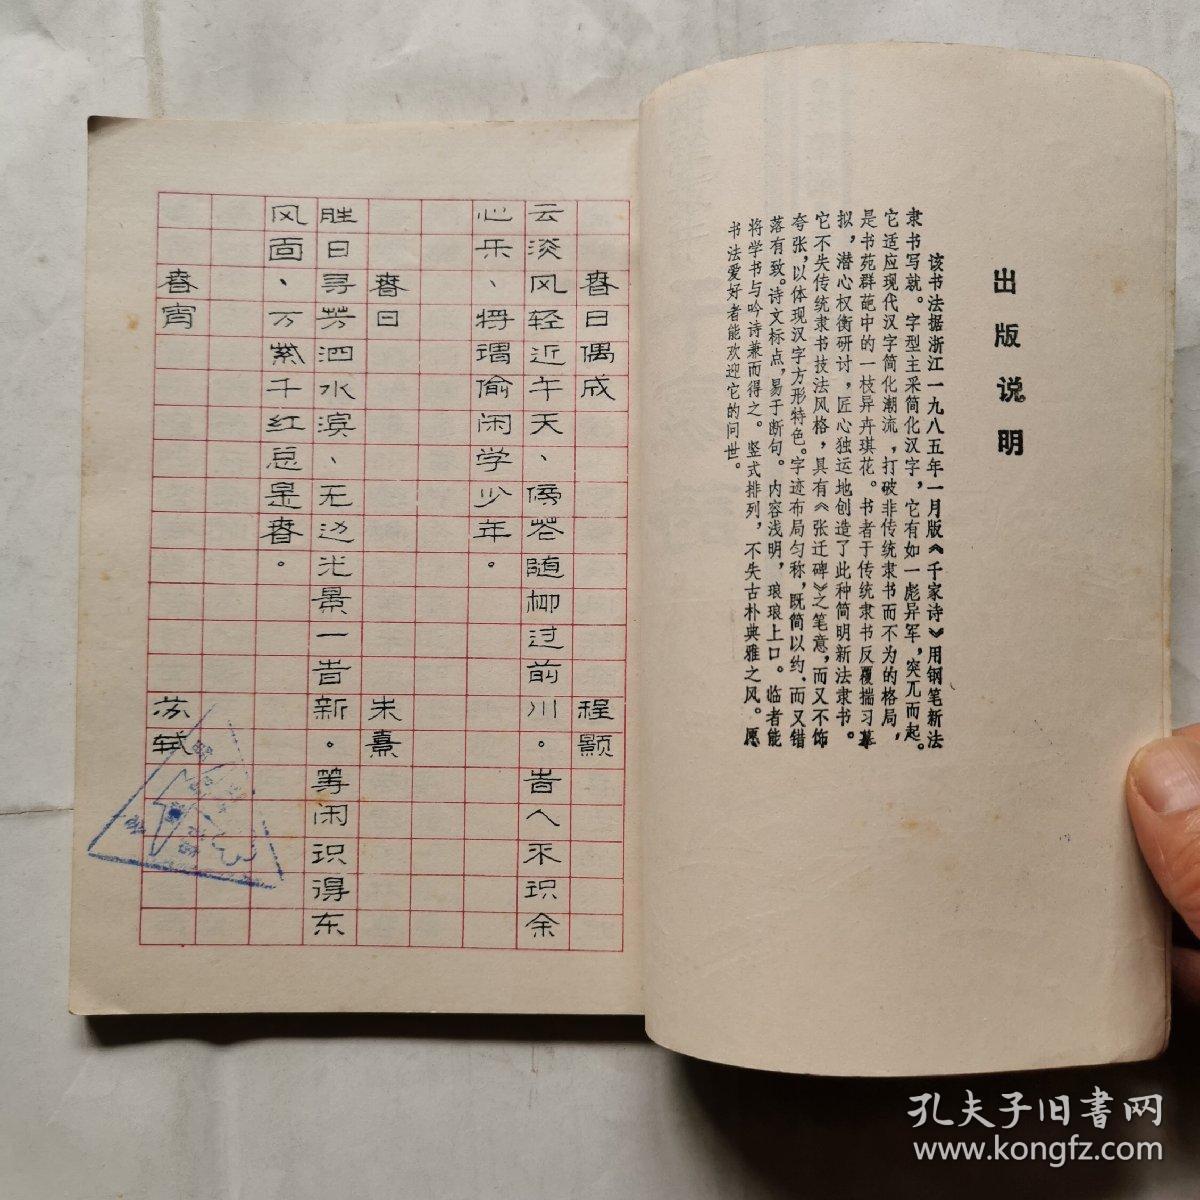 出版说明
该书法据浙江一九八五年一月版《千家诗》用钢笔新法
隶书写就。字型主采简化汉字，它有如一彪异军，突兀而起。
它适应现代汉字简化潮流，打破非传统隶书而不为的格局，
是书苑群葩中的一枝异卉琪花。书者于传统隶书反覆揣习摹
拟，潜心权衡研讨，匠心独运地创造了此种简明新法隶书。
它不失传统隶书技法风格，具有《张迁碑》之笔意，而又不饰
夸张，以体现汉字方形特色。字迹布局匀称，既简以约、而又错
落有致。诗文标点，易于断句。内容浅明，琅琅上口。临者能
将学书与吟诗兼而得之。竖式排列，不失古朴典雅之风。愿
书法爱好者能欢迎它的问世。
春日偶成 程颢
云淡风轻近午天、傍花随柳过前川。昔人不识余
心乐、将谓偷闲学少年。
春日 朱熹
胜日寻芳泗水滨、无边光景一昔新。等闲识得东
风面、万紫千红总是春。
春宵 苏轼
孔夫子旧書网
www.kongfz.com